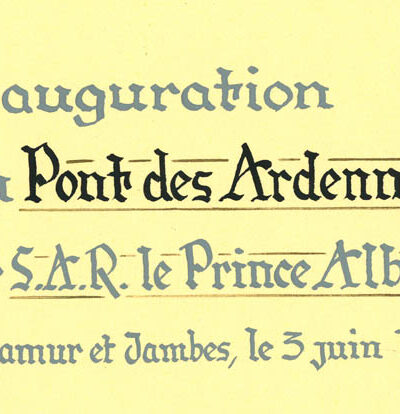 auguration
Pont des Ardenn
S.A.R. le Prince Alb
amur et Jambes, le 3 juin